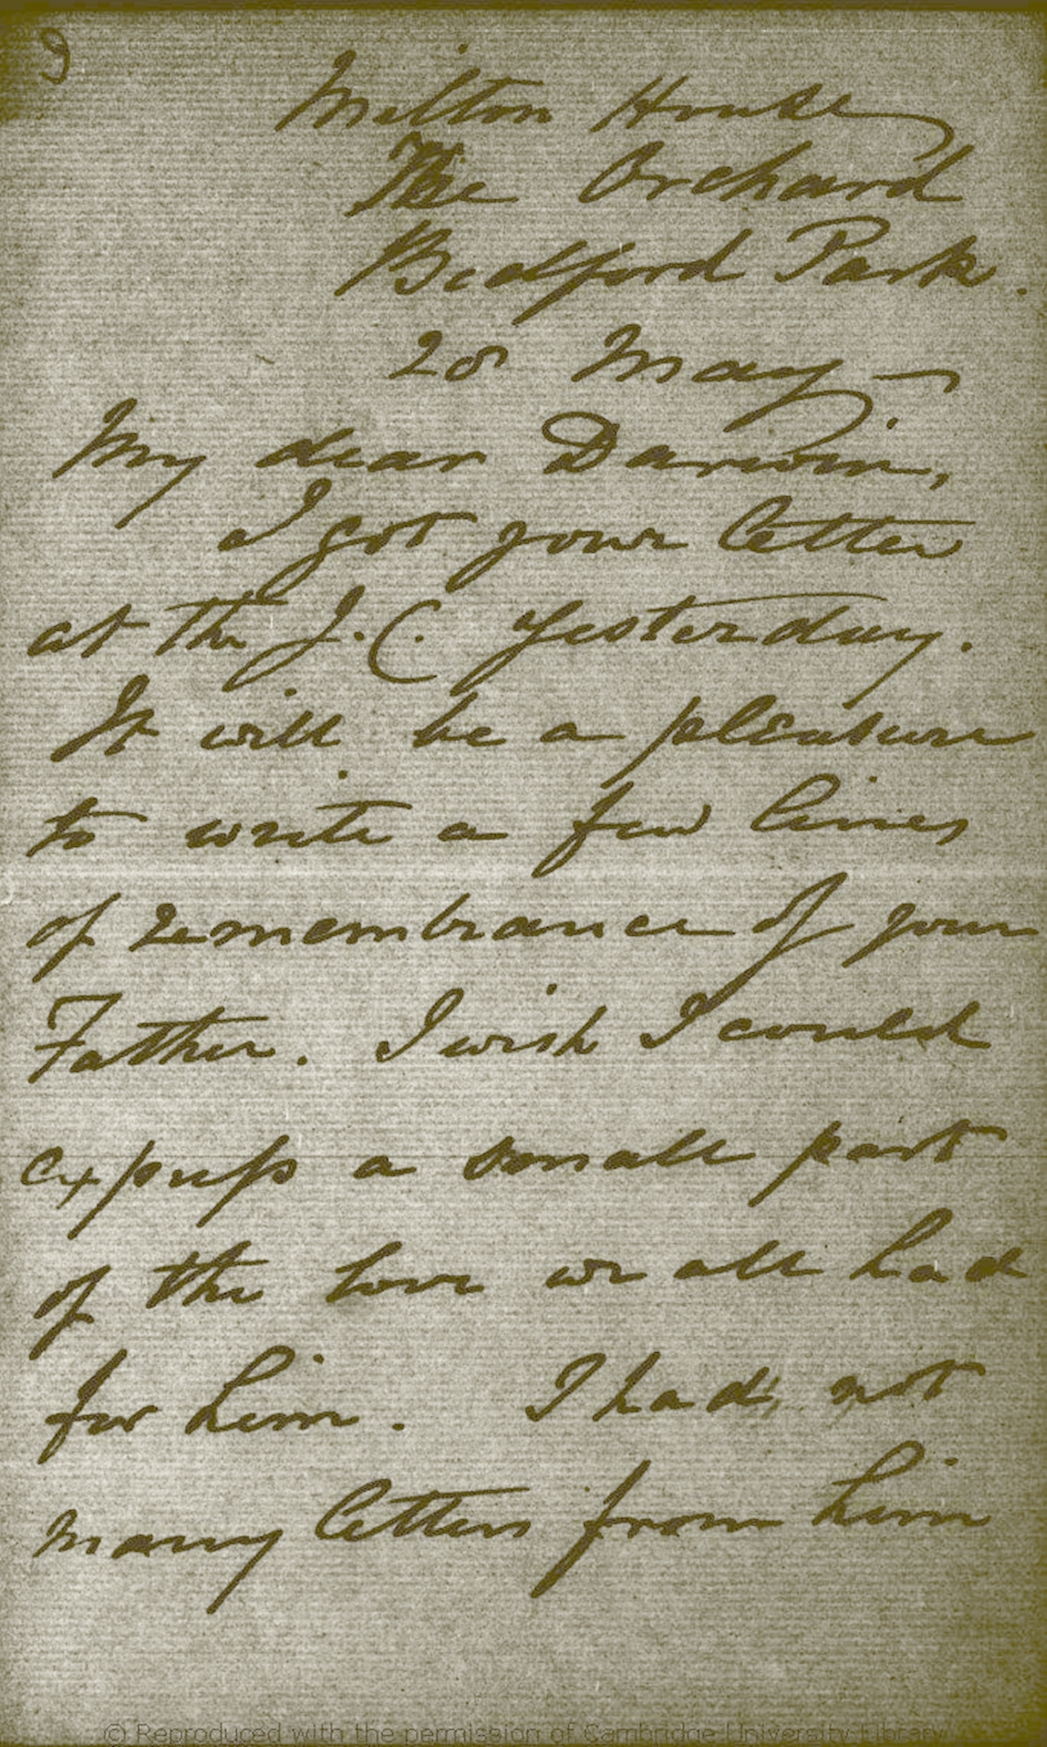 9
Milton House
The Orchard
Bedford Park.
28 May —
My dear Darwin,
I got your letter
at the J.C. yesterday.
It will be a pleasure
to write a few lines
of remembrance of your
Father. I wish I could
express a small part
of the love we all had
for him. I had not
many letters from him
© Reproduced with the permission of Cambridge University Library